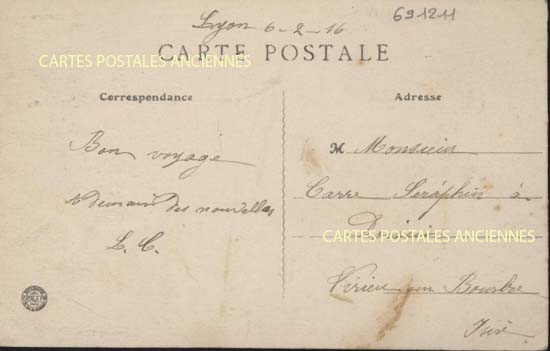 691211
Lyon 6-2-16
CARTE POSTALE
CARTES POSTALES ANCIENNES
Correspondance
Bon voyage
A demain des nouvelles
L. C.
Adresse
M Monsieur
Carre Séraphin à
CARTES POSTALES ANCIENNES
Virieu sur Bourbre
Isère